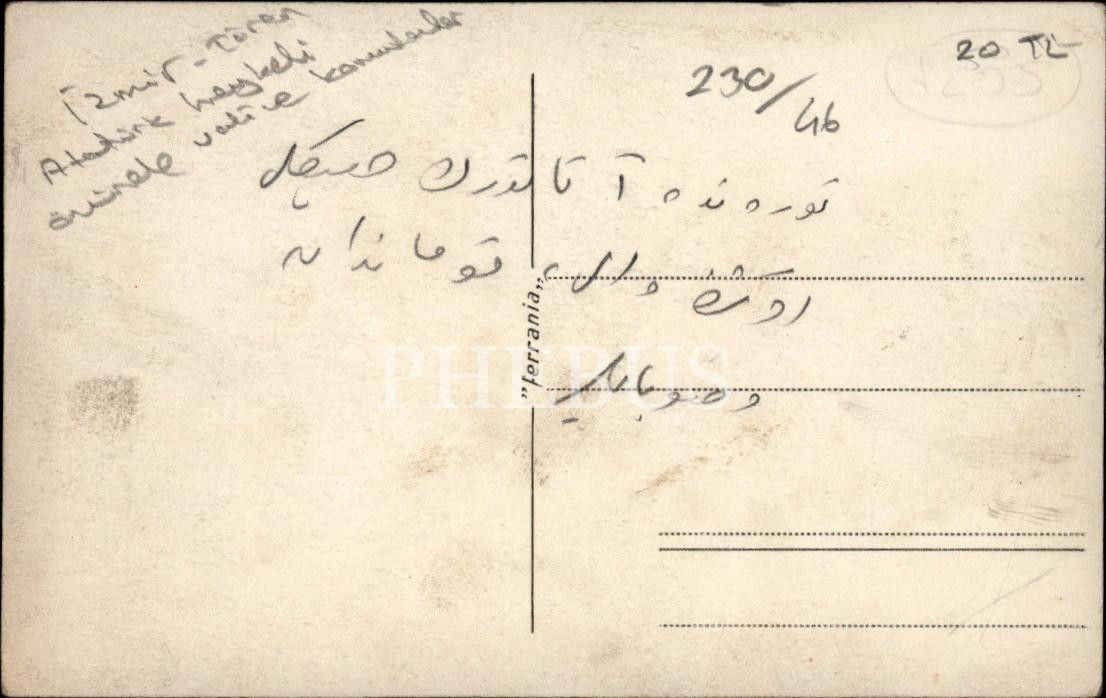 İzmir - Tören
Atatürk heykeli
önünde vali ve komutanlar
20 TL
230/46
تورەندە آتاتورك هیكل
اوكندە والی، قوماندان
و ضوباطلر
"ferrania"
PHEBUS